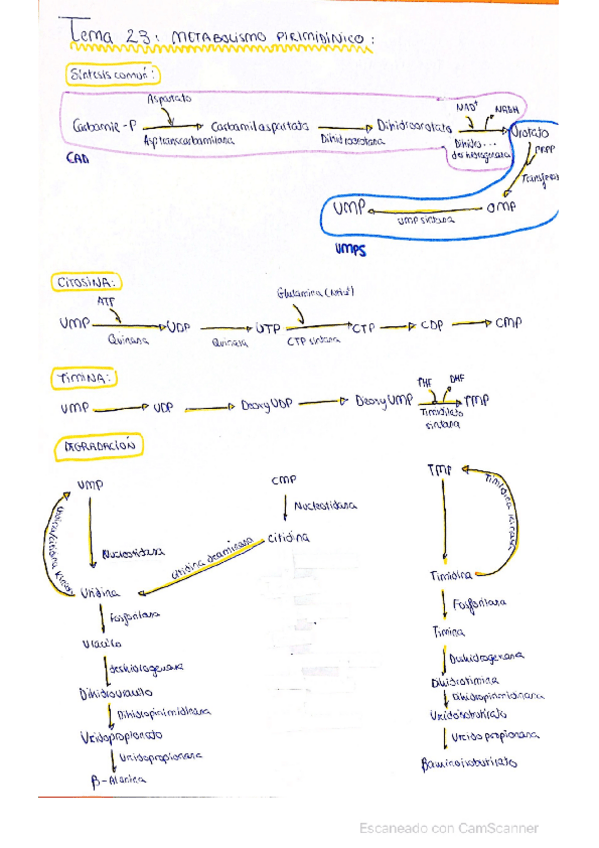 Tema 23: METABOLISMO PIRIMIDÍNICO:
Síntesis común:
Aspartato
NAD+ NADH
Carbamil-P Carbamilaspartato Dihidroorotato Orotato
Asptranscarbamilasa Dihidroorotasa Dihidro... deshidrogenasa
PRPP
CAD
Transferas
UMP OMP
UMP sintasa
UMPS
CITOSINA:
Glutamina (NH4+)
ATP
UMP UDP UTP CTP CDP CMP
Quinasa Quinasa CTP sintasa
TIMINA:
THF DHF
UMP UDP Deoxy UDP Deoxy UMP TMP
Timidilato sintasa
DEGRADACIÓN
UMP CMP TMP
Nucleotidasa
Timidina kinasa
Uridina/citidina kinasa
Citidina
Citidina deaminasa
Nucleotidasa
Uridina Timidina
Fosforilasa Fosforilasa
Uracilo Timina
deshidrogenasa Deshidrogenasa
Dihidrouracilo Dihidrotimina
Dihidropirimidinasa Dihidropirimidinasa
Ureidopropionato Ureidoisobutirato
Ureidopropionasa Ureidopropionasa
β-Alanina βaminoisobutirato
Escaneado con CamScanner